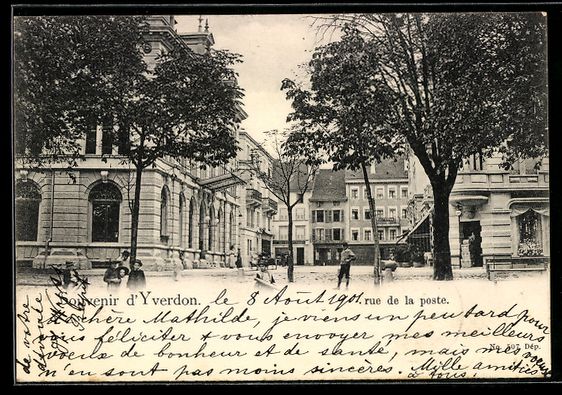 Souvenir d'Yverdon. le 8 Août 1901. rue de la poste.
Chère Mathilde, je viens un peu tard pour
vous féliciter & vous envoyer mes meilleurs
voeux de bonheur et de santé, mais mes voeux
n'en sont pas moins sincères. Mille amitiés
à tous.
No. 597 Dép.
de votre